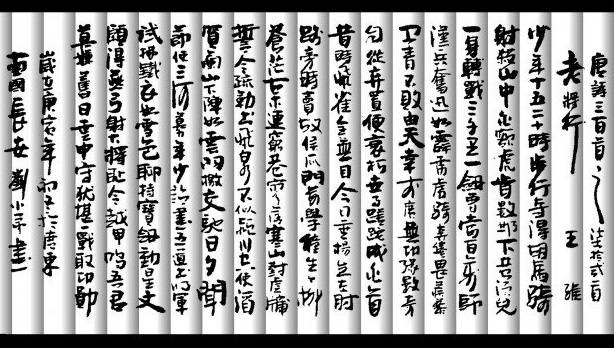 唐詩三百首之柒拾弍首
老將行 王維
少年十五二十時步行奪得胡馬騎
射殺山中白額虎肯數鄴下黃鬚兒
一身轉戰三千里一劍曾當百萬師
漢兵奮迅如霹靂虜騎奔騰畏蒺藜
卫青不敗由天幸李廣無功緣數奇
自從弃置便衰朽世事蹉跎成白首
昔時飛雀全無目今日垂楊生左肘
路旁時賣故侯瓜門前學種先生柳
蒼茫古木連窮巷寥落寒山對虛牖
誓令疏勒出飛泉不似潁川空使酒
賀蘭山下陣如雲羽檄交馳日夕聞
節使三河募年少詔書五道出將軍
試拂鐵衣如雪色聊持寶劍動星文
願得燕弓射大將恥令越甲鳴吾君
莫嫌舊日雲中守猶堪一戰取功勳
歲在庚寅年初冬於廣東
國長安劉小平書